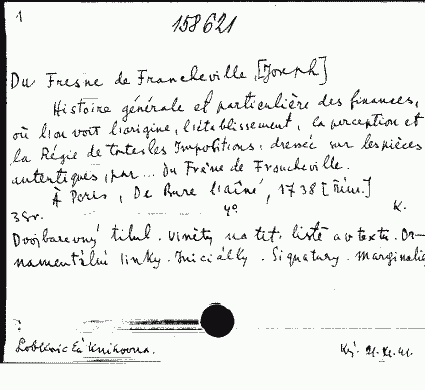 1
158621
Du Fresne de Francheville, [Joseph]
Histoire générale et particulière des finances,
où l'on voit l'origine, l'établissement, la perception et
la Régie de toutes les Impositions: dressée sur les pièces
autentiques, par... du Frêne de Francheville.
À Paris, De Bure l'aîné, 1738 [Réim.]
3 Sv. 4° K.
Dvojbarevný titul. Viněty na tit. listě a v textu. Or-
namentální linky. Iniciálky. Signatury. Marginalie
Lobkovická knihovna.